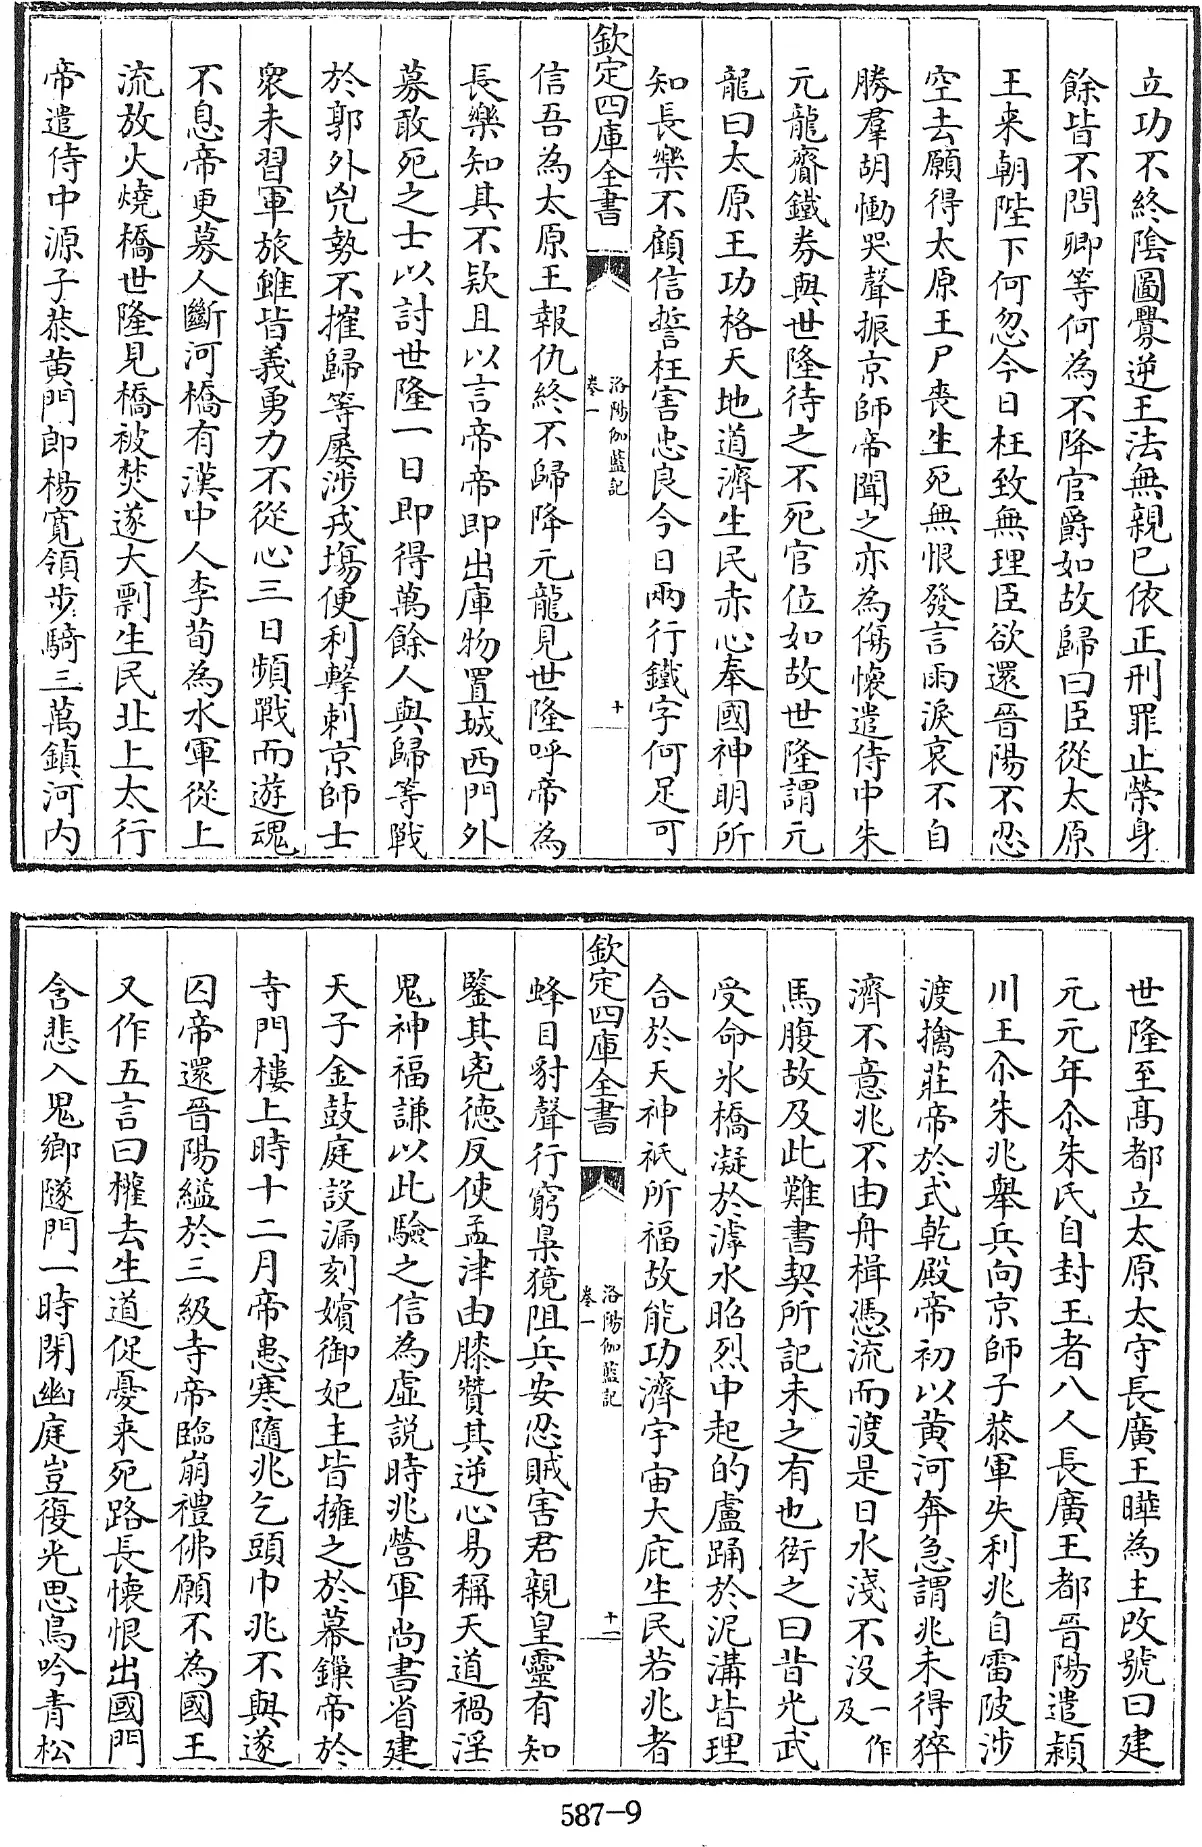 立功不終陰圖釁逆王法無親已依正刑罪止榮身
餘皆不問卿等何為不降官爵如故歸曰臣從太原
王来朝陛下何忽今日枉致無理臣欲還晉陽不忍
空去願得太原王尸喪生死無恨發言雨淚哀不自
勝羣胡慟哭聲振京師帝聞之亦為傷懷遣侍中朱
元龍齎鐵券與世隆待之不死官位如故世隆謂元
龍曰太原王功格天地道濟生民赤心奉國神明所
知長樂不顧信誓枉害忠良今日兩行鐵字何足可
欽定四庫全書
洛陽伽藍記
卷一
十
信吾為太原王報仇終不歸降元龍見世隆呼帝為
長樂知其不欵且以言帝帝即出庫物置城西門外
募敢死之士以討世隆一日即得萬餘人與歸等戰
於郭外兇勢不摧歸等屡涉戎塲便利擊刺京師士
衆未習軍旅雖皆義勇力不從心三日頻戰而遊魂
不息帝更募人斷河橋有漢中人李荀為水軍從上
流放火燒橋世隆見橋被焚遂大剽生民北上太行
帝遣侍中源子恭黄門郎楊寛領步騎三萬鎮河内
世隆至髙都立太原太守長廣王曄為主改號曰建
元元年尒朱氏自封王者八人長廣王都晉陽遣潁
川王尒朱兆舉兵向京師子恭軍失利兆自雷陂涉
渡擒莊帝於式乾殿帝初以黄河奔急謂兆未得猝
濟不意兆不由舟楫憑流而渡是日水淺不没一作及
馬腹故及此難書契所記未之有也衒之曰昔光武
受命氷橋凝於滹水昭烈中起的盧踊於泥溝皆理
合於天神祇所福故能功濟宇宙大庇生民若兆者
欽定四庫全書
洛陽伽藍記
卷一
十一
蜂目豺聲行窮梟獍阻兵安忍賊害君親皇靈有知
鑒其兇德反使孟津由膝贊其逆心易稱天道禍淫
鬼神福謙以此驗之信為虚說時兆營軍尚書省建
天子金鼓庭設漏刻嬪御妃主皆擁之於幕鏁帝於
寺門樓上時十二月帝患寒隨兆乞頭巾兆不與遂
囚帝還晉陽縊於三級寺帝臨崩禮佛願不為國王
又作五言曰權去生道促憂来死路長懷恨出國門
含悲入鬼鄉隧門一時閉幽庭豈復光思鳥吟青松
587-9